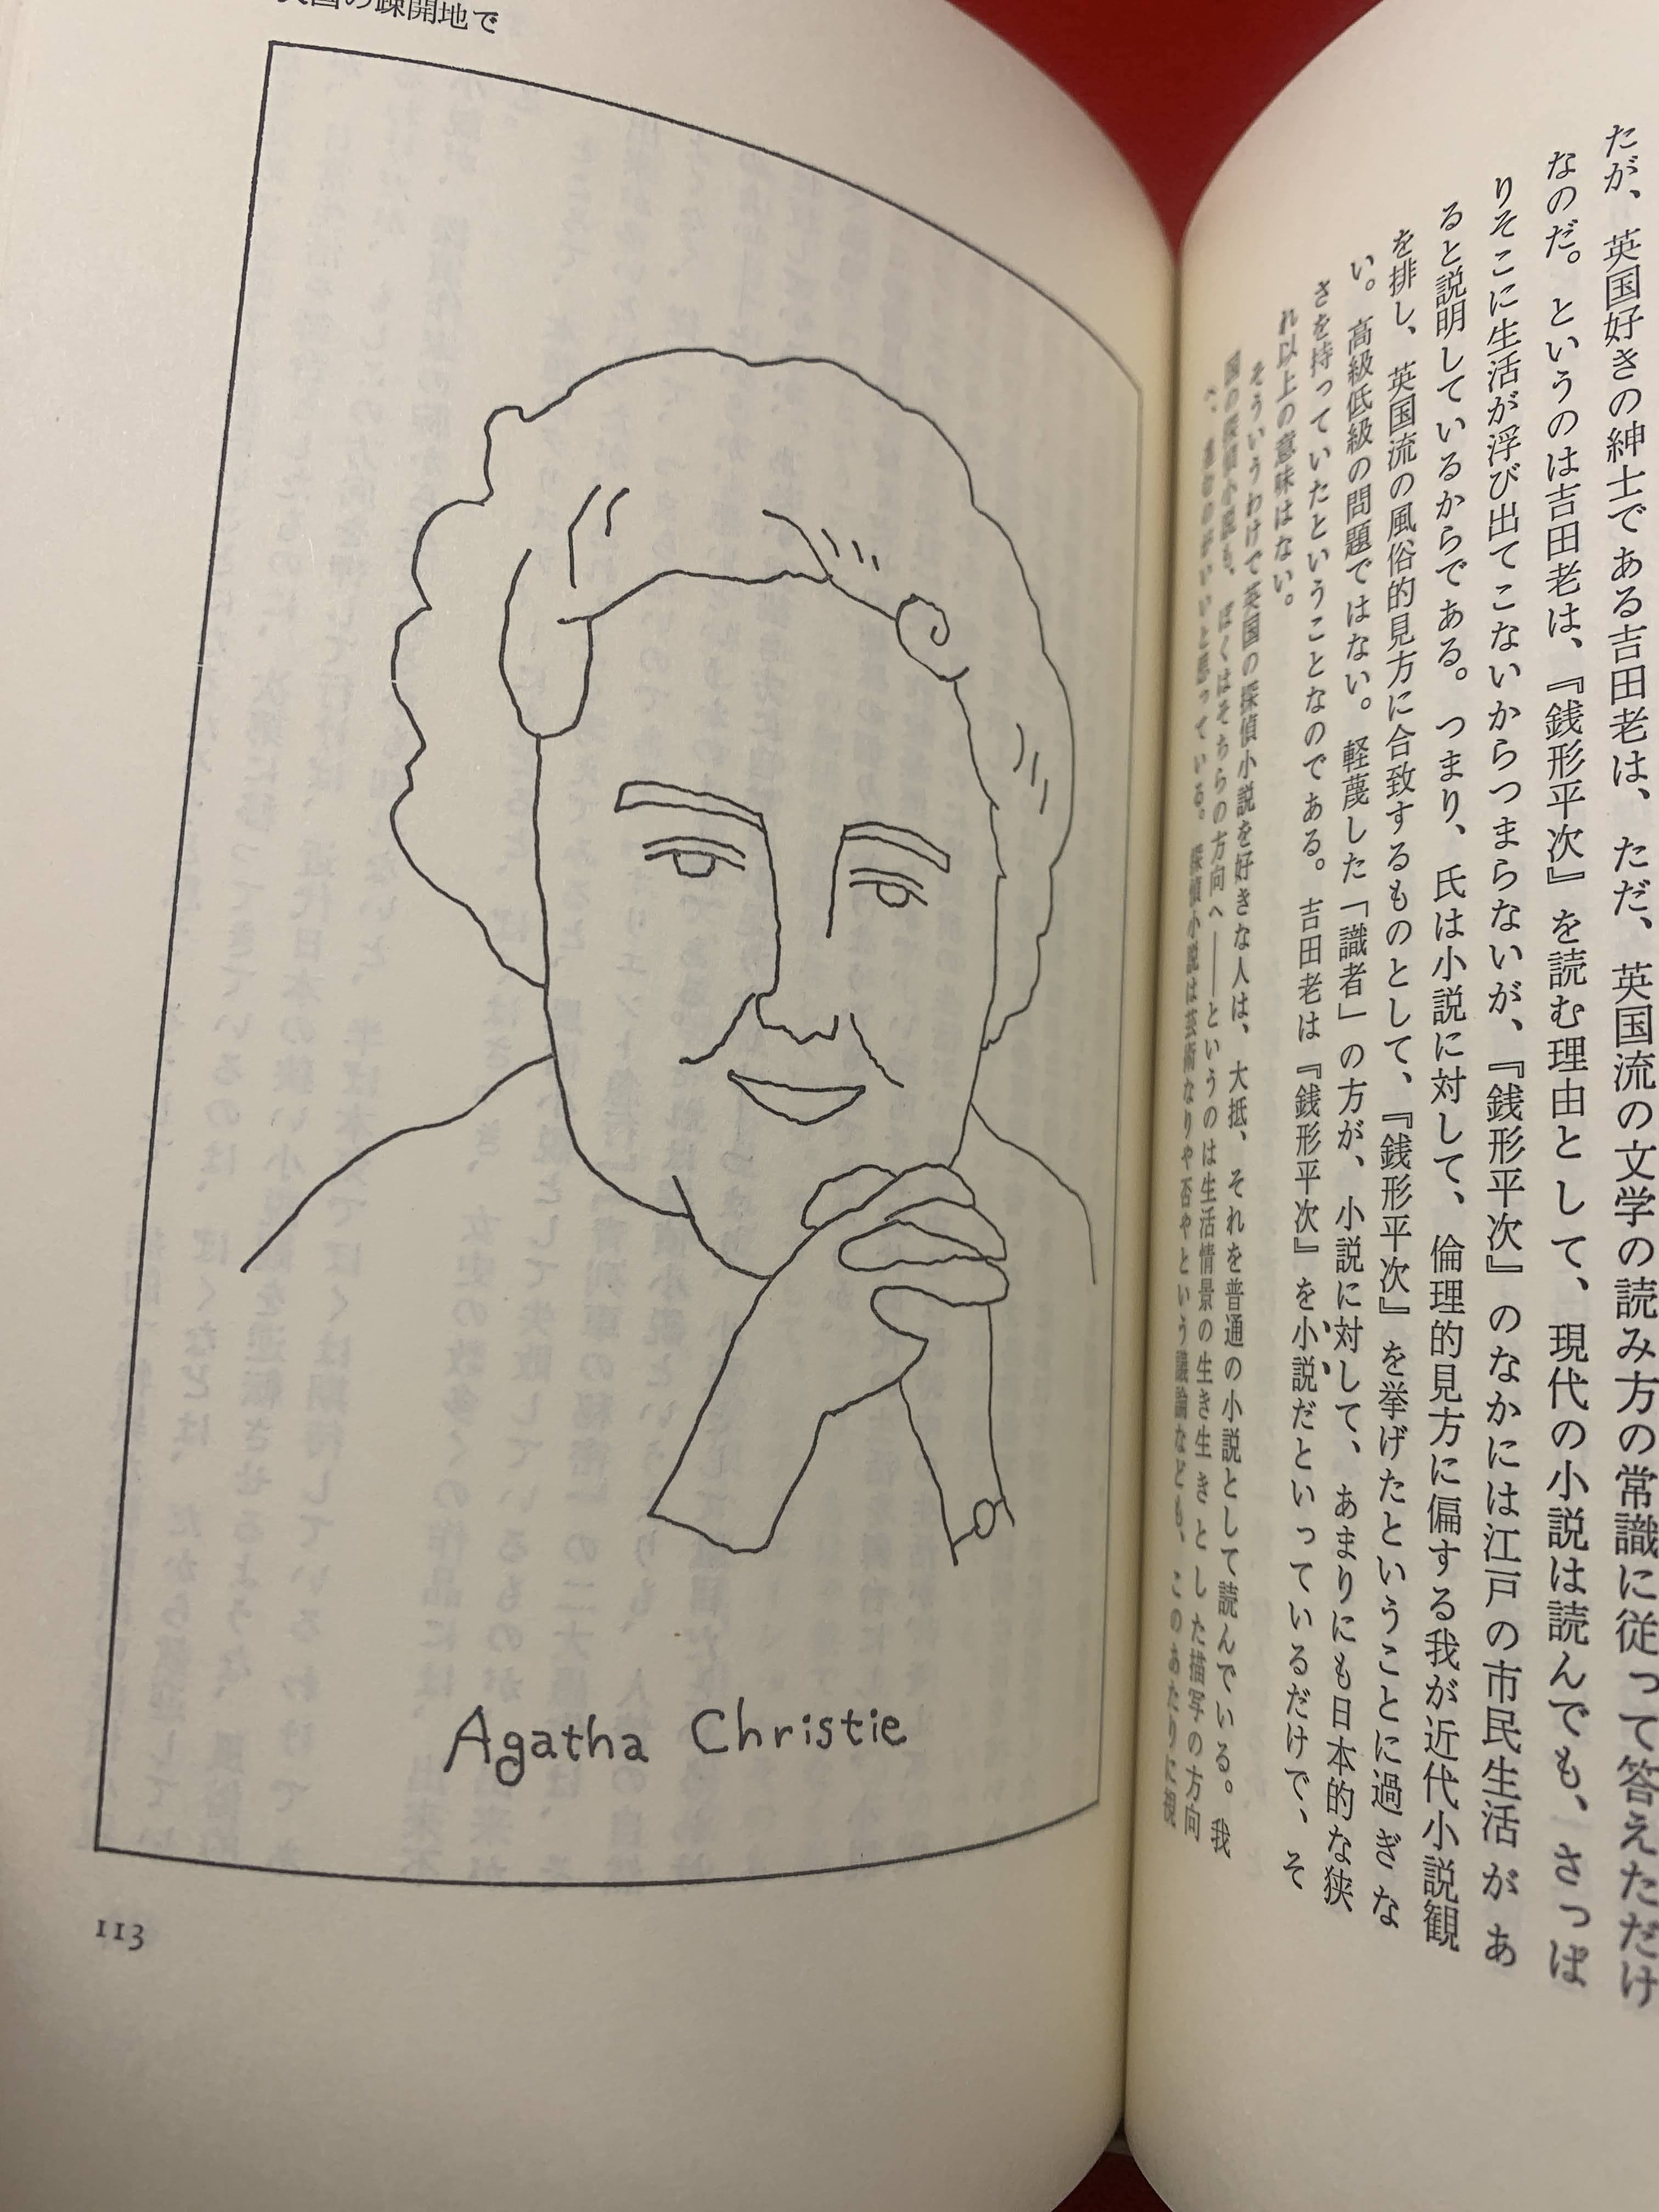 たが、英国好きの紳士である吉田老は、ただ、英国流の文学の読み方の常識に従って答えただけ
なのだ。というのは吉田老は、『銭形平次』を読む理由として、現代の小説は読んでも、さっぱ
りそこに生活が浮び出てこないからつまらないが、『銭形平次』のなかには江戸の市民生活があ
ると説明しているからである。つまり、氏は小説に対して、倫理的見方に偏する我が近代小説観
を排し、英国流の風俗的見方に合致するものとして、『銭形平次』を挙げたということに過ぎな
い。高級低級の問題ではない。軽蔑した「識者」の方が、小説に対して、あまりにも日本的な狭
さを持っていたということなのである。吉田老は『銭形平次』を小説だといっているだけで、そ
れ以上の意味はない。
そういうわけで英国の探偵小説を好きな人は、大抵、それを普通の小説として読んでいる。我
国の探偵小説も、ぼくはそちらの方向へ――というのは生活情景の生き生きとした描写の方向
へ、進むのがいいと思っている。探偵小説は芸術なりや否やという議論なども、このあたりに
国の疎開地で
Agatha Christie
113